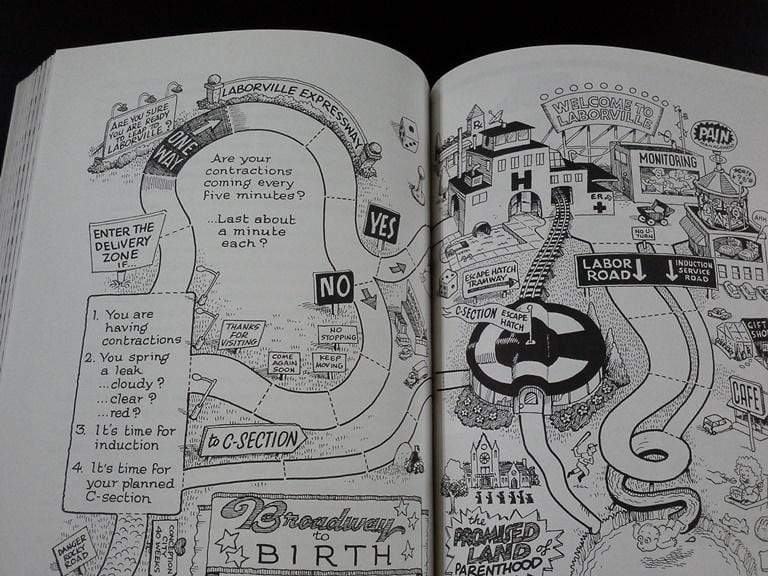 ARE YOU SURE
YOU ARE READY
TO LEAP TO
LABORVILLE?
ONE
WAY
LABORVILLE EXPRESSWAY
Are your
contractions
coming every
five minutes?
...Last about
a minute
each?
YES
NO
ENTER THE
DELIVERY
ZONE
IF...
1. You are
having
contractions
2. You spring
a leak
...cloudy?
...clear?
...red?
3. It's time for
induction
4. It's time for
your planned
C-section
THANKS
FOR
VISITING
COME
AGAIN
SOON
NO
STOPPING
KEEP
MOVING
to C-SECTION
Broadway
to
BIRTH
DANGER
ROCKY
ROAD
CONCEPTION
CITY
40 WEEKS
WELCOME TO
LABORVILLE
PAIN
MONITORING
H
E.R.
NO U-
TURN
LABOR
ROAD
INDUCTION
SERVICE
ROAD
ESCAPE HATCH
TRAMWAY
C-SECTION
ESCAPE
HATCH
GIFT
CAFE
the
PROMISED
LAND of
PARENTHOOD